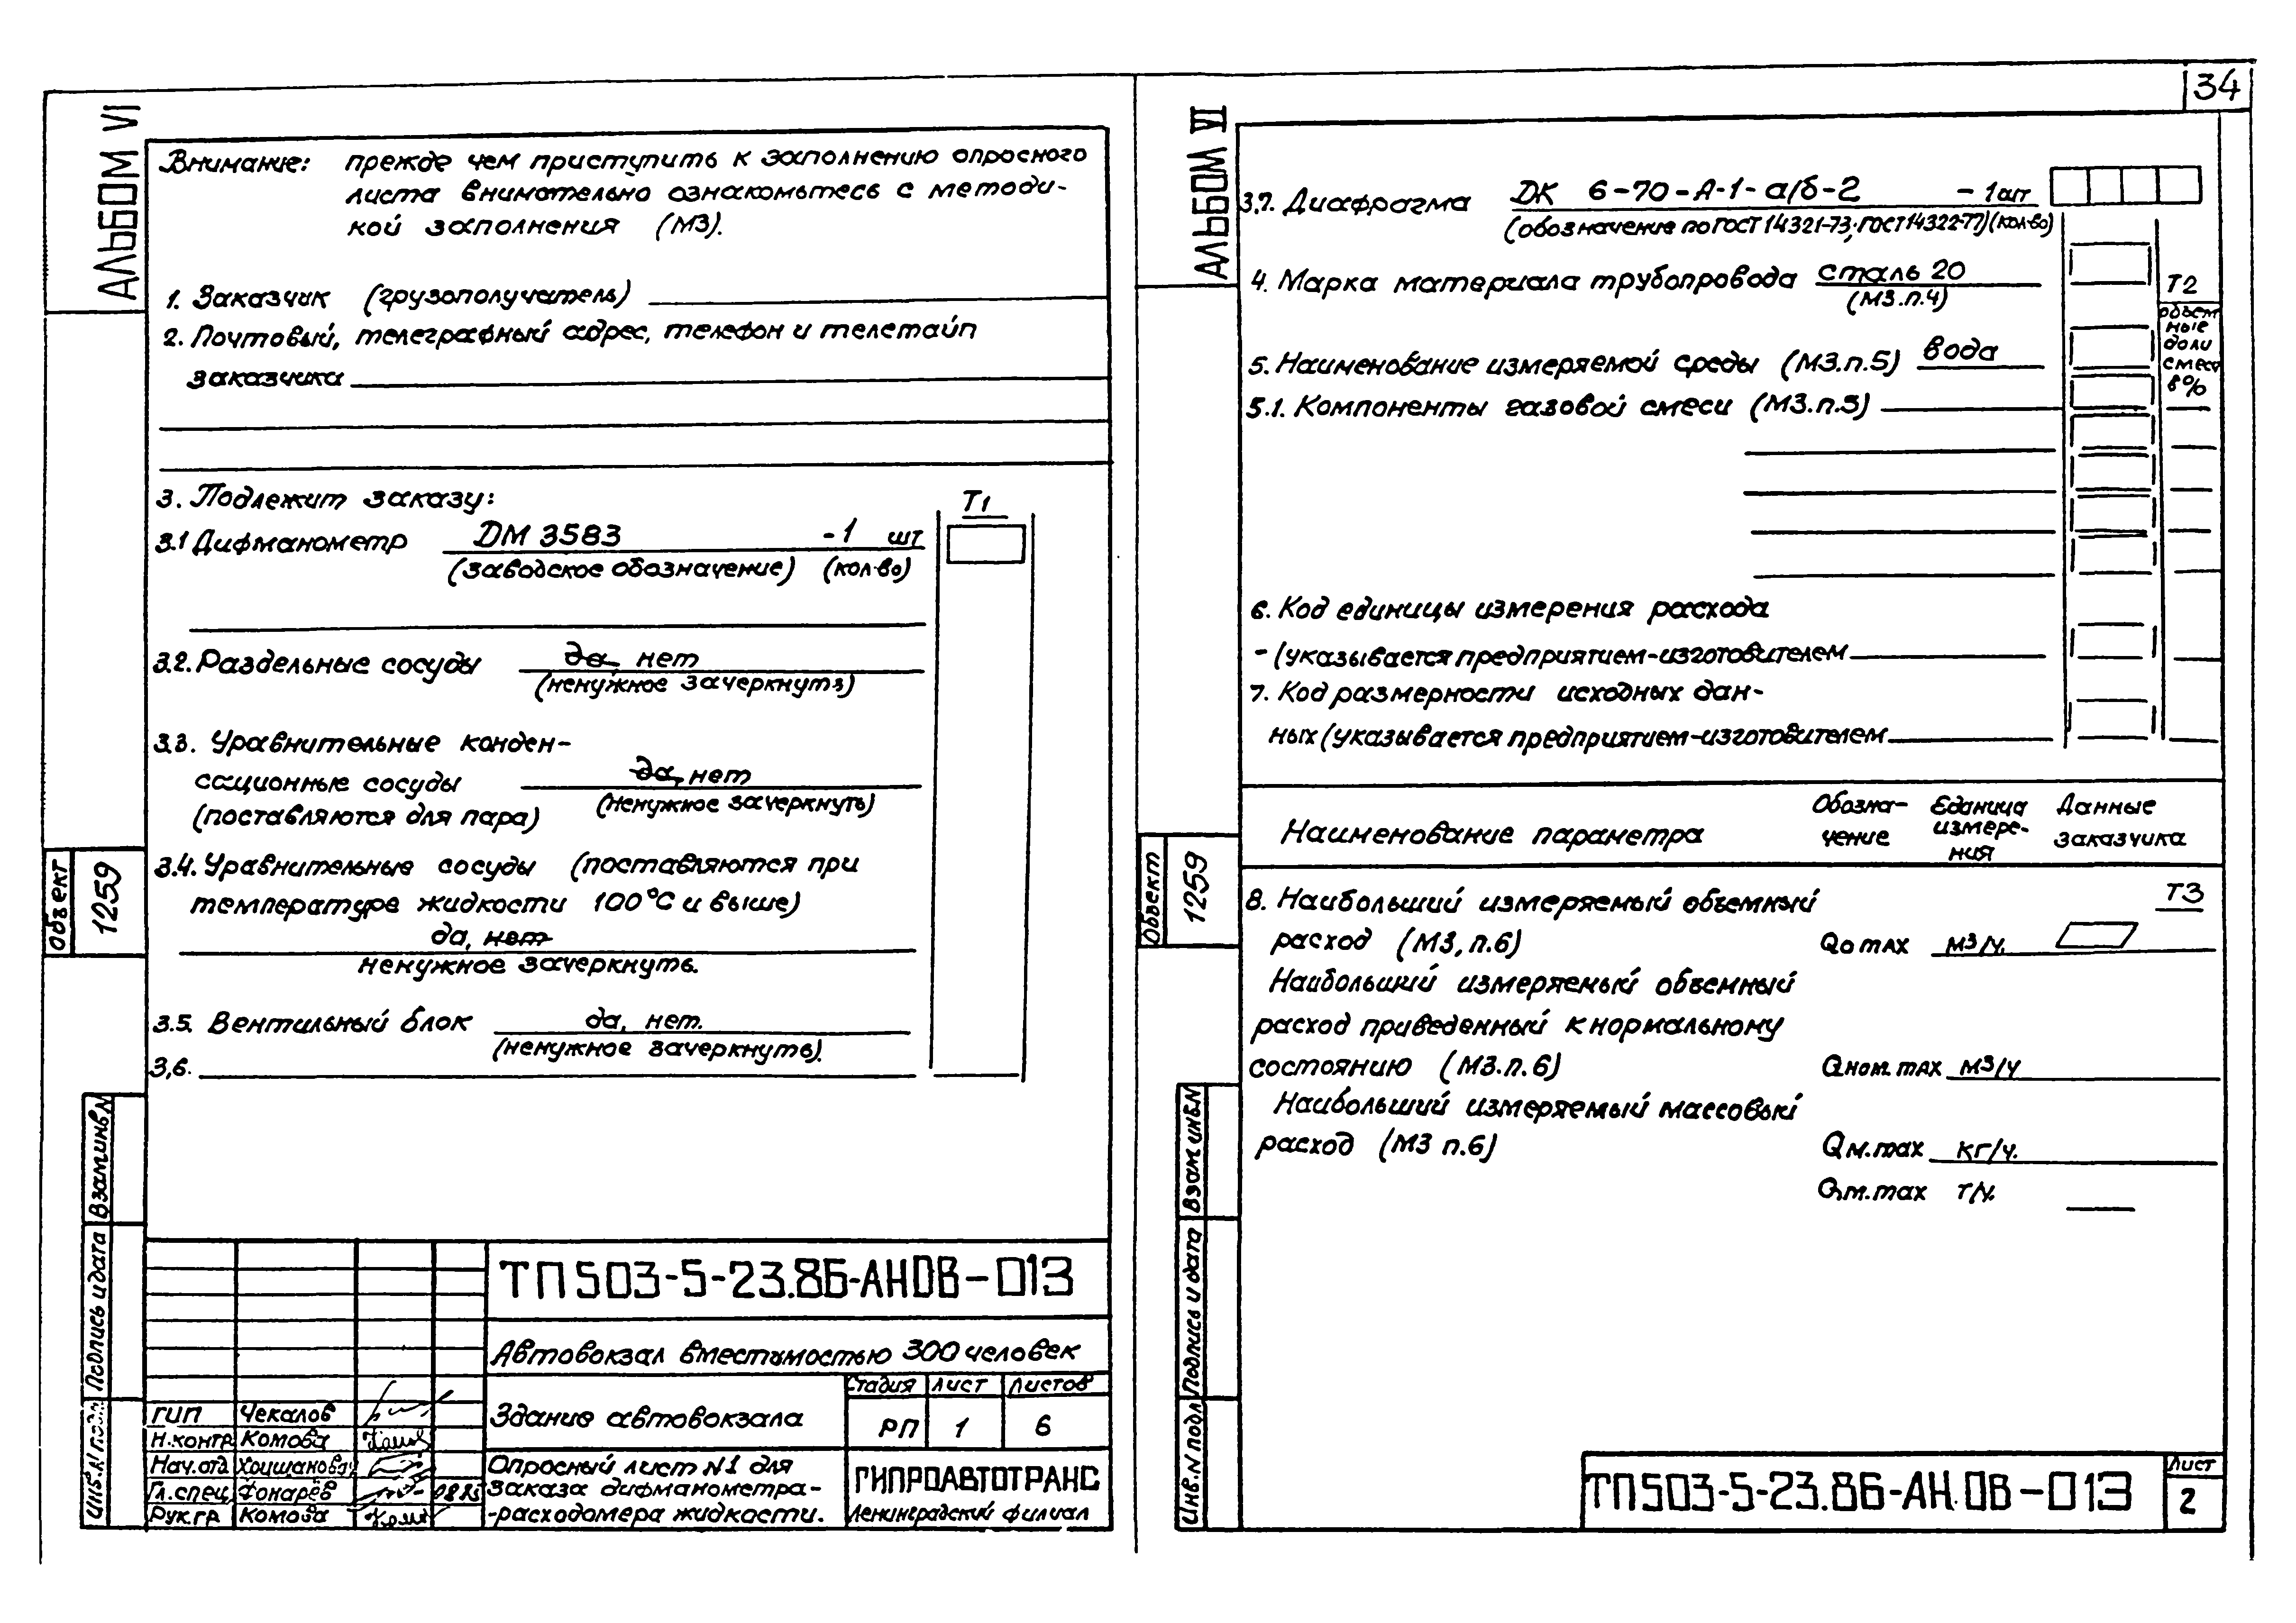 АЛЬБОМ VI
Внимание: прежде чем приступить к заполнению опросного
листа внимательно ознакомьтесь с методи-
кой заполнения (М3).
1. Заказчик (грузополучатель)
2. Почтовый, телеграфный адрес, телефон и телетайп
заказчика
3. Подлежит заказу:
Т1
3.1 Дифманометр ДМ 3583 - 1 шт
(заводское обозначение) (кол-во)
3.2. Раздельные сосуды да, нет
(ненужное зачеркнуть)
3.3. Уравнительные конден-
сационные сосуды да, нет
(поставляются для пара) (ненужное зачеркнуть)
3.4. Уравнительные сосуды (поставляются при
температуре жидкости 100°С и выше)
да, нет
ненужное зачеркнуть.
3.5. Вентильный блок да, нет.
(ненужное зачеркнуть).
3,6.
Объект 1259
Взам.инв.N
Подпись и дата
Инв.N подл
ТП503-5-23.86-АНОВ-013
Автовокзал вместимостью 300 человек
Здание автовокзала
Стадия Лист Листов
РП 1 6
Опросный лист N1 для
заказа дифманометра-
-расходомера жидкости.
ГИПРОАВТОТРАНС
Ленинградский филиал
ГИП Чекалов
Н.контр Комова
Нач.отд Хоцшанова
Гл.спец. Фонарёв 08.85
Рук.гр Комова
34
АЛЬБОМ VI
3,7. Диафрагма ДК 6-70-А-1-а/б-2 - 1шт
(обозначение по ГОСТ 14321-73; ГОСТ 14322-77) (кол-во)
4. Марка материала трубопровода сталь 20
(М3.п.4)
Т2
объем
ные
доли
смеси
в%
5. Наименование измеряемой среды (М3.п.5) вода
5.1. Компоненты газовой смеси (М3.п.5)
6. Код единицы измерения расхода
- (указывается предприятием-изготовителем
7. Код размерности исходных дан-
ных (указывается предприятием-изготовителем
Наименование параметра
Обозна-
чение
Единица
измере-
ния
Данные
заказчика
8. Наибольший измеряемый объемный
расход (М3, п.6) Qo max м3/ч.
Т3
Наибольший измеряемый объемный
расход приведенный к нормальному
состоянию (М3.п.6) Qном.max м3/ч
Наибольший измеряемый массовый
расход (М3 п.6) Qм.max кг/ч.
Qм.max т/ч.
Объект 1259
Взам инв.N
Подпись и дата
Инв.N подл
ТП503-5-23.86-АН.ОВ-013
Лист
2